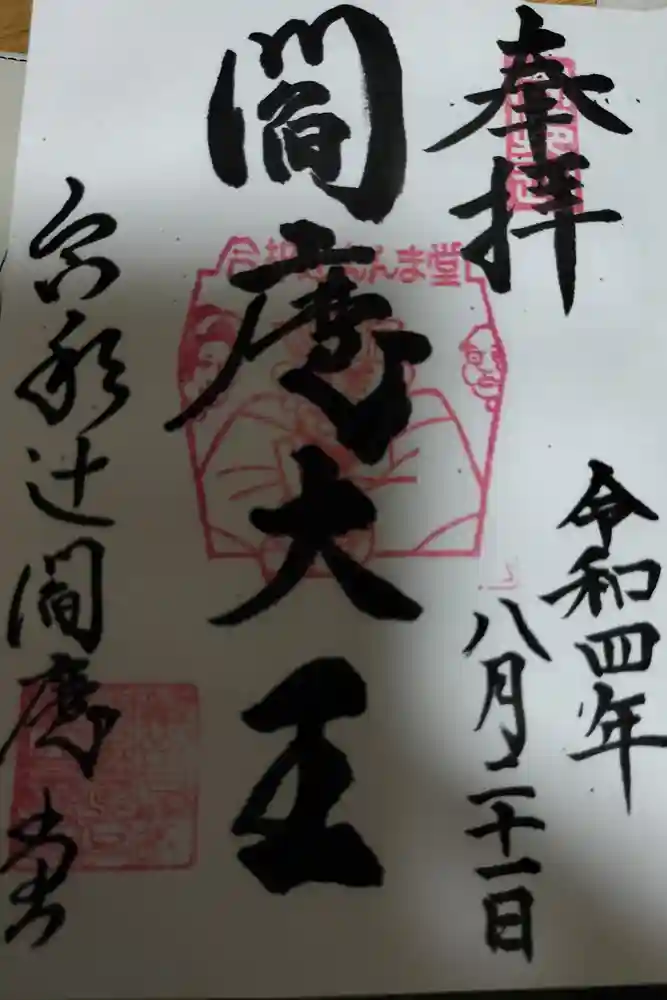 奉拝
令和四年
八月二十一日
閻魔大王
んま堂
辻閻魔堂